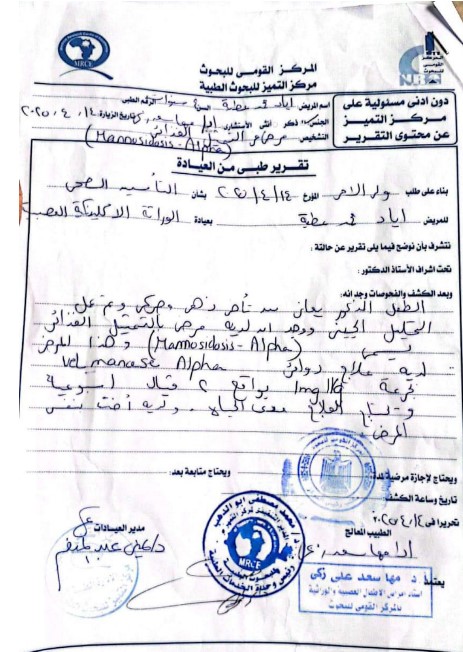 المركز القومى للبحوث
مركز التميز للبحوث الطبية
MRCE
المركز القومى للبحوث
NRC
دون ادنى مسئولية على
مركز التميز
عن محتوى التقرير
اسم المريض: اياد محمد عطية السن: سنوات الرقم الطبى
الجنس: ذكر أنثى الأستشارى: ا.د/ مها سعد زكى تاريخ الزيارة: ١٤/٤/٢٠٢٥
التشخيص: مرض التمثيل الغذائى
(Mannosidosis-Alpha)
تقرير طبى من العيادة
بناء على طلب: ولى الامر المؤرخ ١٤/٤/٢٠٢٥ بشأن: التأمين الصحى
للمريض: اياد محمد عطية بعيادة: الوراثة الاكلينيكية العصبية
نتشرف بأن نوضح فيما يلى تقرير عن حالتة:
تحت اشراف الأستاذ الدكتور:
وبعد الكشف والفحوصات وجد انه:
الطفل المذكور يعانى من تأخر ذهنى وحركى وتم عمل
التحليل الجينى ووجد ان لديه مرض بالتمثيل الغذائى
يسمى (Mannosidosis-Alpha) وهذا المرض
لديه علاج دوائى velmanase Alpha
بجرعة 1mg/kg بواقع ٢ فيال اسبوعية
العلاج مدى الحياة. ولديه أخت بنفس
المرض
ويحتاج لاجازة مرضية لمدة
ويحتاج متابعة بعد:
تاريخ وساعة الكشف
تحريرا فى ١٤/٤/٢٠٢٥
الطبيب المعالج
مدير العيادات
ا.د/ مها سعد زكى
د/ عبد المنعم
يعتمد
د. محمد مصطفى ابو الدهب
رئيس وحدة الخدمات الطبية
MRCE
د. مها سعد على زكى
استاذ امراض الاطفال العصبية والوراثية
بالمركز القومى للبحوث